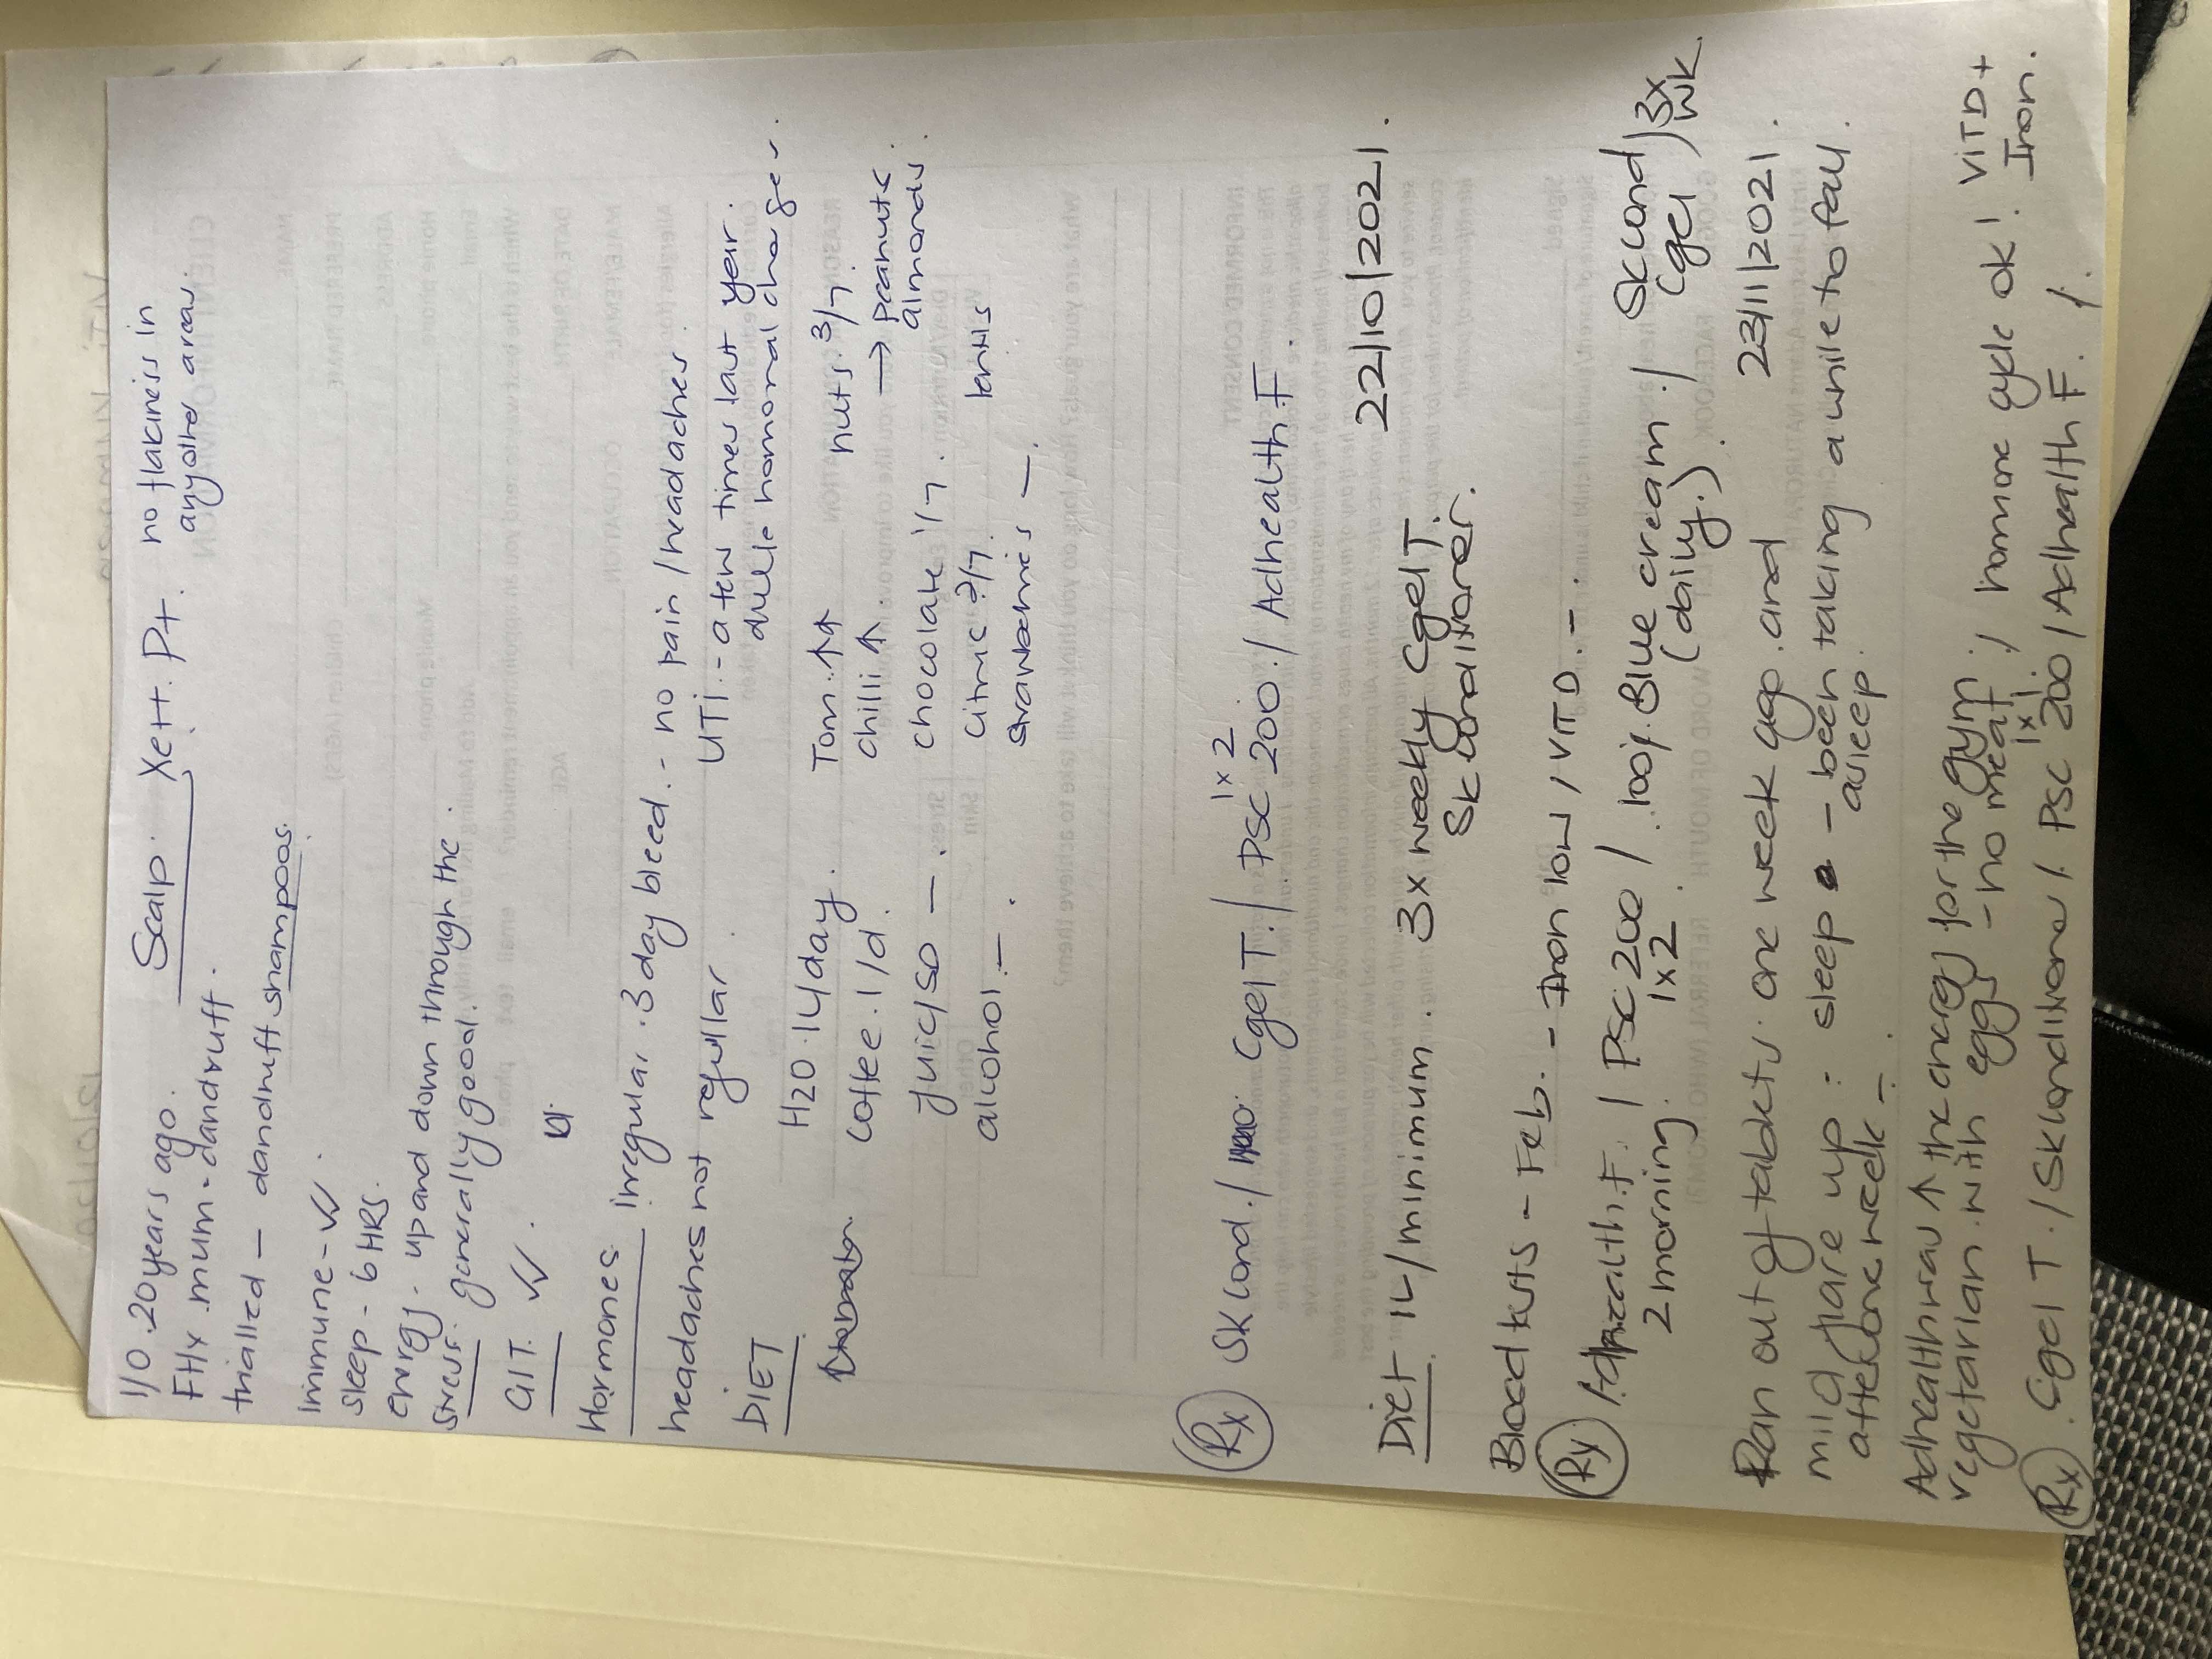 1/0 . 20 years ago. Scalp. X Pt. no flakiness in
any other areas.
FHx . mum - dandruff.
trialled — dandruff shampoos.
immune - ✓✓ .
sleep - 6 HRS.
energy - up and down through the .
stress. generally good.
GIT. ✓✓ .
Hormones irregular . 3 day bleed. - no pain / headaches .
headaches not regullar . UTI. - a few times last year.
due to homonal changes.
DIET H20 . 1L/day . Tom. ↑↑ nuts. 3/7.
coffee . 1/d . chilli ↑ . → peanuts .
almonds.
juic/SD — . chocolate 1/7 .
alcohol. — . citric 2/7. lentils
strawberries — .
Rx SK cond. / CgelT. / Psc 200. / Adhealth.F .
1x2
22/10/2021.
Diet. 1L/minimum . 3x weekly CgelT.
SK conditioner.
Blood tests - Feb. - Iron low / VIT D . -
Rx Adhealth.F. / PSC 200 / 100g. Blue cream. / SK cond ) 3x
2 morning. 1x2 . (daily.) . Cgel wk.
23/11/2021 .
Ran out of tablets. one week ago. and
mild flare up : sleep - been taking a while to fall .
after one week — . asleep .
Adhealth was ↑ the energy for the gym . / homone cycle ok ! VIT D +
vegetarian. with eggs - no meat . Iron .
1x1.
Rx . Cgel T. / SK conditioner /. PSC 200 / Adhealth F. /.